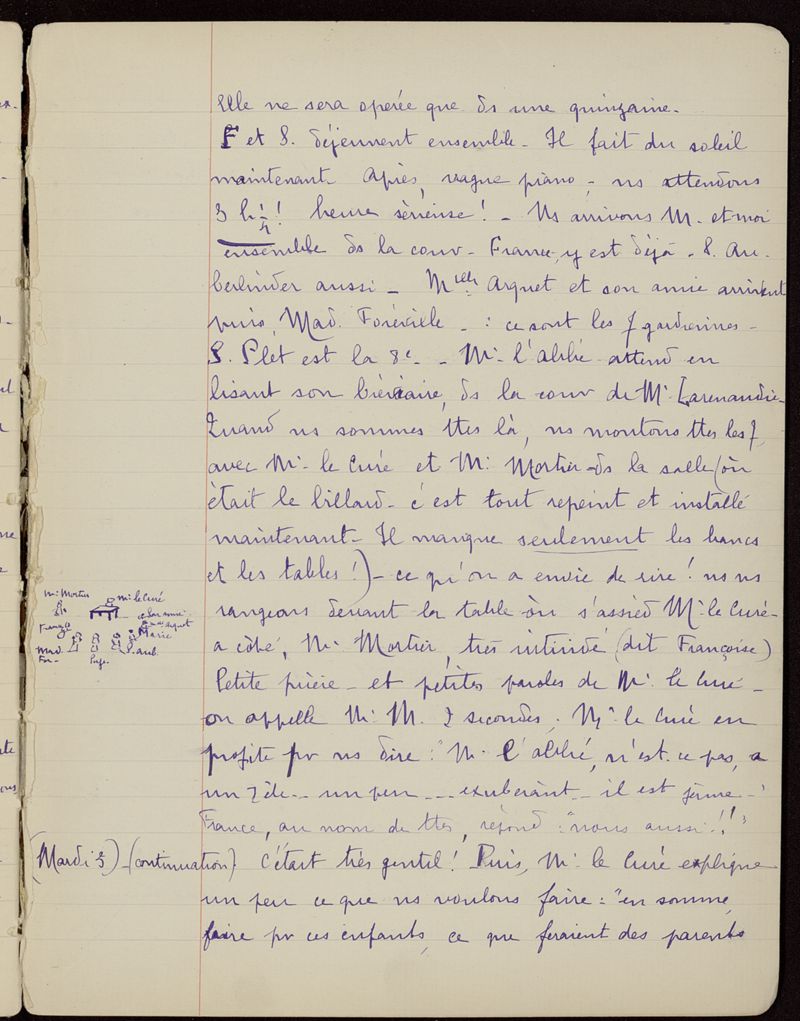 Elle ne sera opérée que ds une quinzaine.
F et S. déjeunent ensemble. Il fait du soleil
maintenant. Après, vague piano. ns attendons
3 h ¼! heure sérieuse! - Ns arrivons M. et moi
ensemble ds la cour. France, y est déjà. S. Au-
berlinder aussi - Melle Arquet et son amie arrivent
puis, Mad. Foréville - : ce sont les 7 gardiennes -
S. Plet est la 8e. - Mr l'abbé attend en
lisant son bréviaire, ds la cour de Mr Larenaudie.
Quand ns sommes ttes là, ns montons ttes les 7,
avec Mr le Curé et Mr Mortier ds la salle (où
était le billard - c'est tout repeint et installé
maintenant - Il manque seulement les bancs
et les tables!) - ce qu'on a envie de rire! ns ns
rangeons devant la table où s'assied Mr le Curé -
a côté, Mr Mortier, très intimidé (dit Françoise)
Petite prière - et petites paroles de Mr le Curé -
on appelle Mr M. 2 secondes. Mr le Curé en
profite pr ns dire: "Mr l'abbé, n'est-ce pas, a
un zèle... un peu... exubérant - il est jeune -"
France, au nom de ttes, répond: "nous aussi!!"
(Mardi 3) - (continuation) C'était très gentil! Puis, Mr le Curé explique
un peu ce que ns voulons faire: "en somme,
faire pr ces enfants, ce que feraient des parents
Mr Mortier
Mr le Curé
son amie
Melle Arquet
France
Marie
Mad. For.
S. Aub.